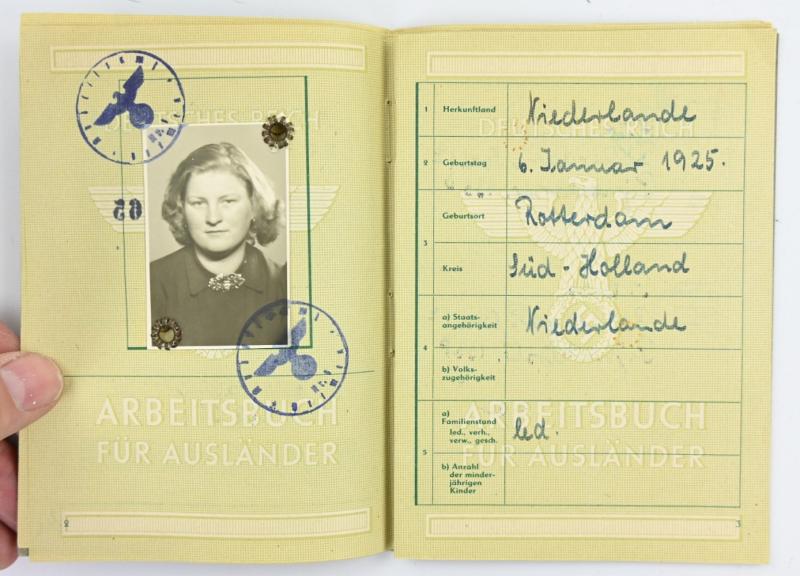 DEUTSCHES REICH
65
ARBEITSBUCH
FÜR AUSLÄNDER
2
DEUTSCHES REICH
1 Herkunftland Niederlande
2 Geburtstag 6. Januar 1925.
3 Geburtsort Rotterdam
Kreis Süd-Holland
4 a) Staats-
angehörigkeit Niederlande
b) Volks-
zugehörigkeit
5 a)
Familienstand
led., verh.,
verw., gesch. led.
b) Anzahl
der minder-
jährigen
Kinder
ARBEITSBUCH
FÜR AUSLÄNDER
3